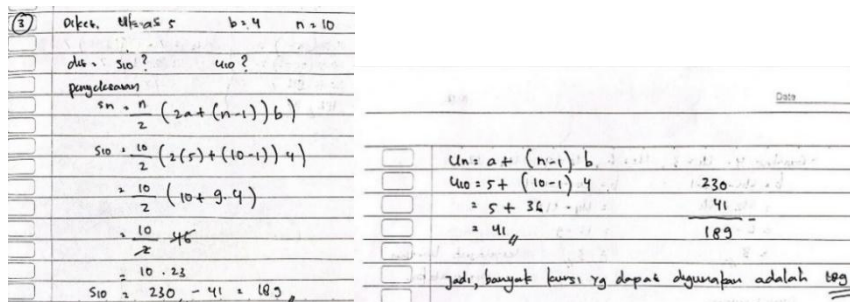 ③ Diket. U1 = a = 5 b = 4 n = 10
dit. S10 ? U10 ?
penyelesaian
Sn = n/2 (2a + (n-1)) b)
S10 = 10/2 (2(5) + (10-1)) 4)
= 10/2 (10 + 9.4)
= 10/2 46
= 10 . 23
S10 = 230 - 41 = 189
Date
Un = a + (n-1) b
U10 = 5 + (10-1) 4
= 5 + 36
= 41
230
41
189
Jadi, banyak kursi yg dapat digunakan adalah 189